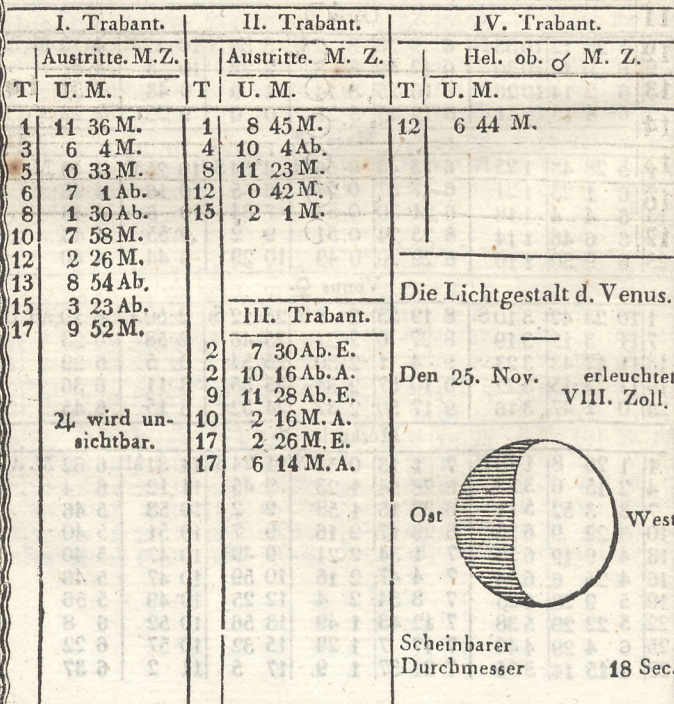 I. Trabant.
Austritte. M. Z.
T U. M.
1 11 36 M.
3 6 4 M.
5 0 33 M.
6 7 1 Ab.
8 1 30 Ab.
10 7 58 M.
12 2 26 M.
13 8 54 Ab.
15 3 23 Ab.
17 9 52 M.
♃ wird un-
sichtbar.
II. Trabant.
Austritte. M. Z.
T U. M.
1 8 45 M.
4 10 4 Ab.
8 11 23 M.
12 0 42 M.
15 2 1 M.
III. Trabant.
2 7 30 Ab. E.
2 10 16 Ab. A.
9 11 28 Ab. E.
10 2 16 M. A.
17 2 26 M. E.
17 6 14 M. A.
IV. Trabant.
Hel. ob. ☌ M. Z.
T U. M.
12 6 44 M.
Die Lichtgestalt d. Venus.
Den 25. Nov. erleuchtet
VIII. Zoll.
Ost West
Scheinbarer
Durchmesser 18 Sec.